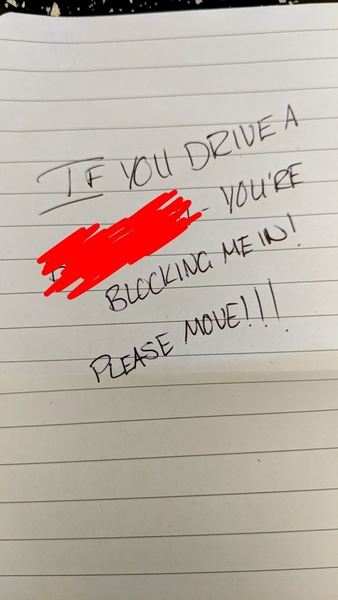 IF YOU DRIVE A
- YOU'RE
BLOCKING ME IN!
PLEASE MOVE!!!